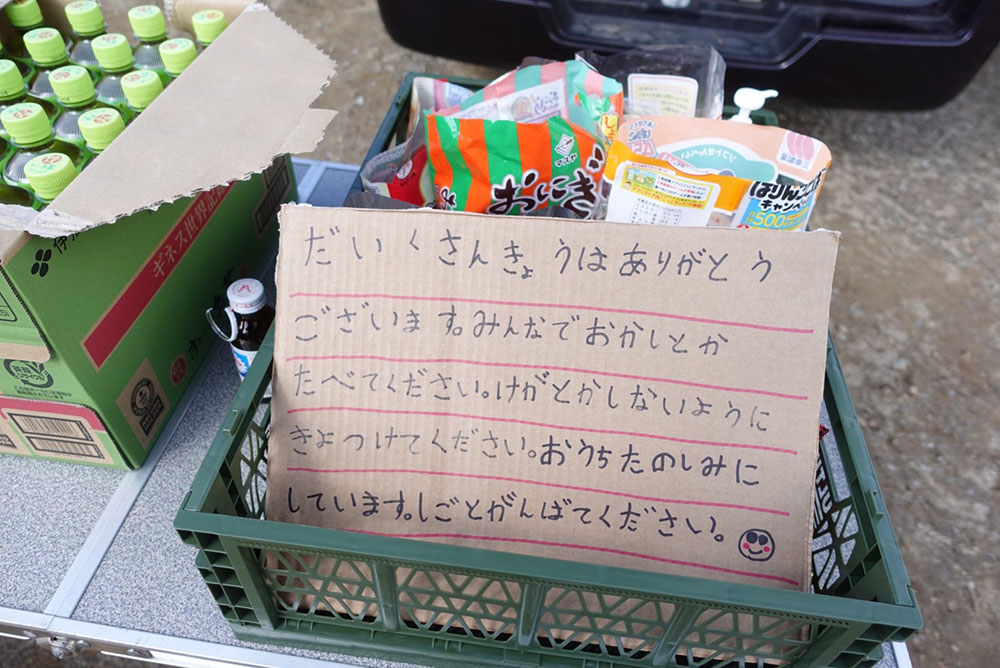 おにぎ
マスヤ
三幸製菓
ぱりんこ
キャンペーン
500
伊
ギネス世界記
だいくさんきょうはありがとう
ございます。みんなでおかしとか
たべてください。けがとかしないように
きよつけてください。おうちたのしみに
しています。しごとがんばてください。